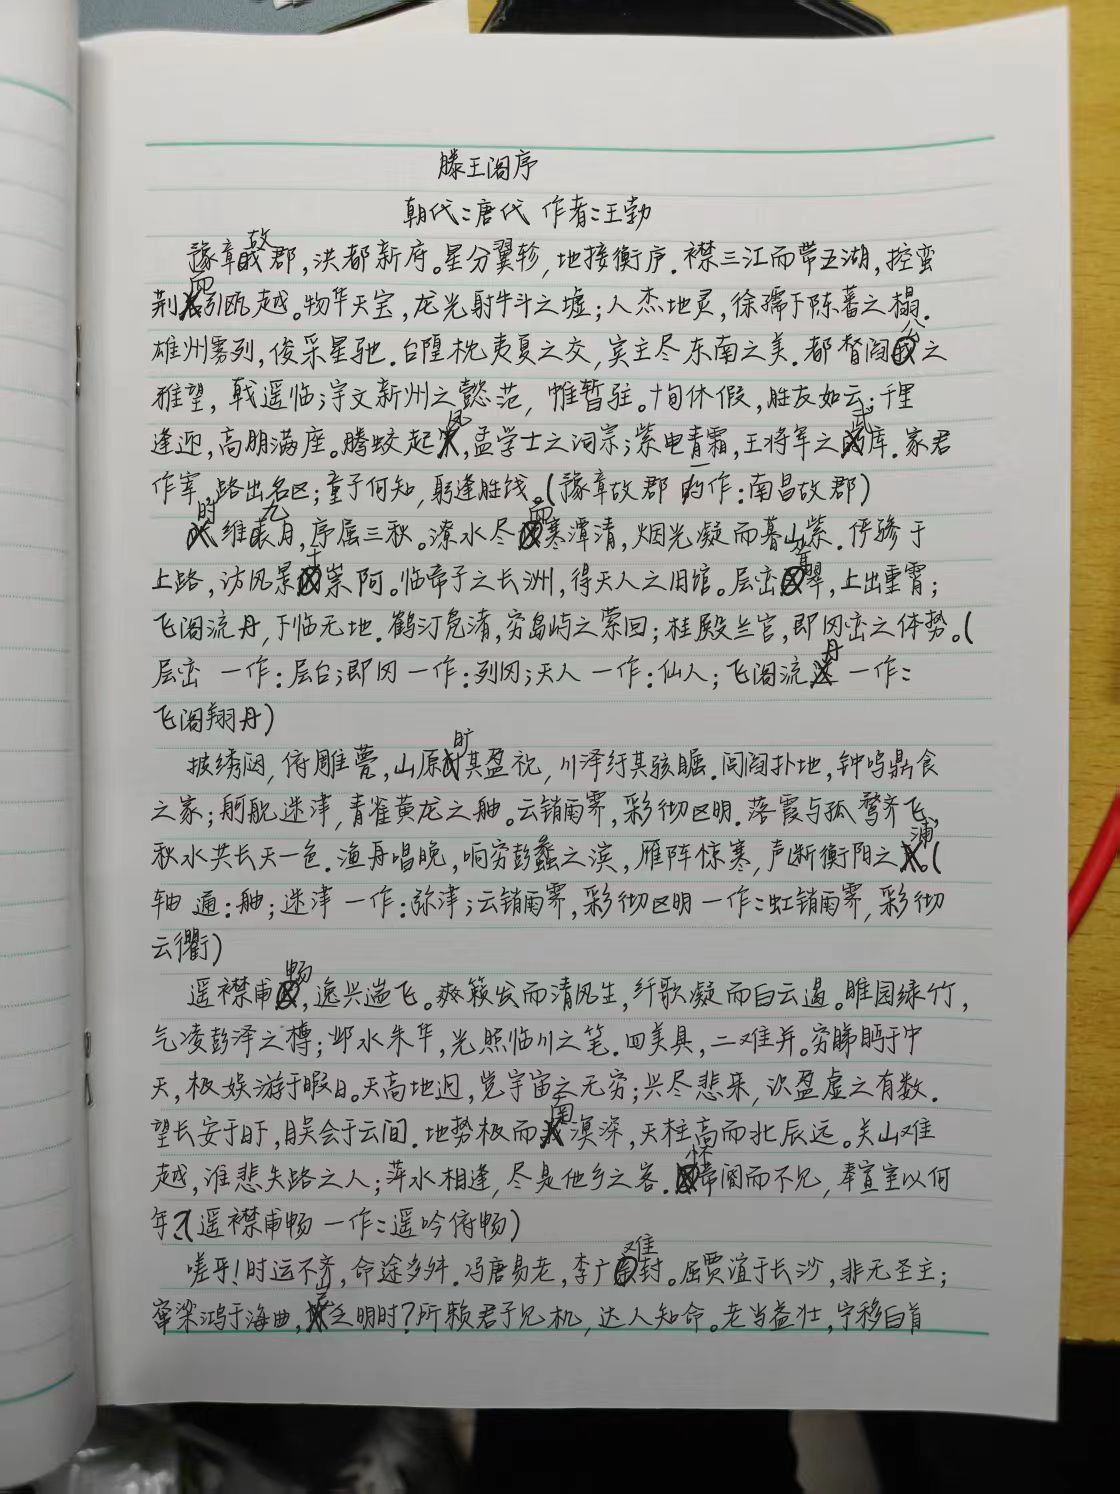 滕王阁序
朝代：唐代 作者：王勃
豫章故郡，洪都新府。星分翼轸，地接衡庐。襟三江而带五湖，控蛮
荆而引瓯越。物华天宝，龙光射牛斗之墟；人杰地灵，徐孺下陈蕃之榻。
雄州雾列，俊采星驰。台隍枕夷夏之交，宾主尽东南之美。都督阎公之
雅望，戟遥临；宇文新州之懿范，帷暂驻。十旬休假，胜友如云；千里
逢迎，高朋满座。腾蛟起凤，孟学士之词宗；紫电青霜，王将军之武库。家君
作宰，路出名区；童子何知，躬逢胜饯。（豫章故郡 一作：南昌故郡）
时维九月，序属三秋。潦水尽而寒潭清，烟光凝而暮山紫。俨骖于
上路，访风景于崇阿。临帝子之长洲，得天人之旧馆。层峦耸翠，上出重霄；
飞阁流丹，下临无地。鹤汀凫渚，穷岛屿之萦回；桂殿兰宫，即冈峦之体势。（
层峦 一作：层台；即冈 一作：列冈；天人 一作：仙人；飞阁流丹 一作：
飞阁翔丹）
披绣闼，俯雕甍，山原旷其盈视，川泽纡其骇瞩。闾阎扑地，钟鸣鼎食
之家；舸舰迷津，青雀黄龙之舳。云销雨霁，彩彻区明。落霞与孤鹜齐飞，
秋水共长天一色。渔舟唱晚，响穷彭蠡之滨，雁阵惊寒，声断衡阳之浦。（
轴 通：舳；迷津 一作：弥津；云销雨霁，彩彻区明 一作：虹销雨霁，彩彻
云衢）
遥襟甫畅，逸兴遄飞。爽籁发而清风生，纤歌凝而白云遏。睢园绿竹，
气凌彭泽之樽；邺水朱华，光照临川之笔。四美具，二难并。穷睇眄于中
天，极娱游于暇日。天高地迥，觉宇宙之无穷；兴尽悲来，识盈虚之有数。
望长安于日下，目吴会于云间。地势极而南溟深，天柱高而北辰远。关山难
越，谁悲失路之人；萍水相逢，尽是他乡之客。怀帝阍而不见，奉宣室以何
年？（遥襟甫畅 一作：遥吟俯畅）
嗟乎！时运不齐，命途多舛。冯唐易老，李广难封。屈贾谊于长沙，非无圣主；
窜梁鸿于海曲，岂乏明时？所赖君子见机，达人知命。老当益壮，宁移白首